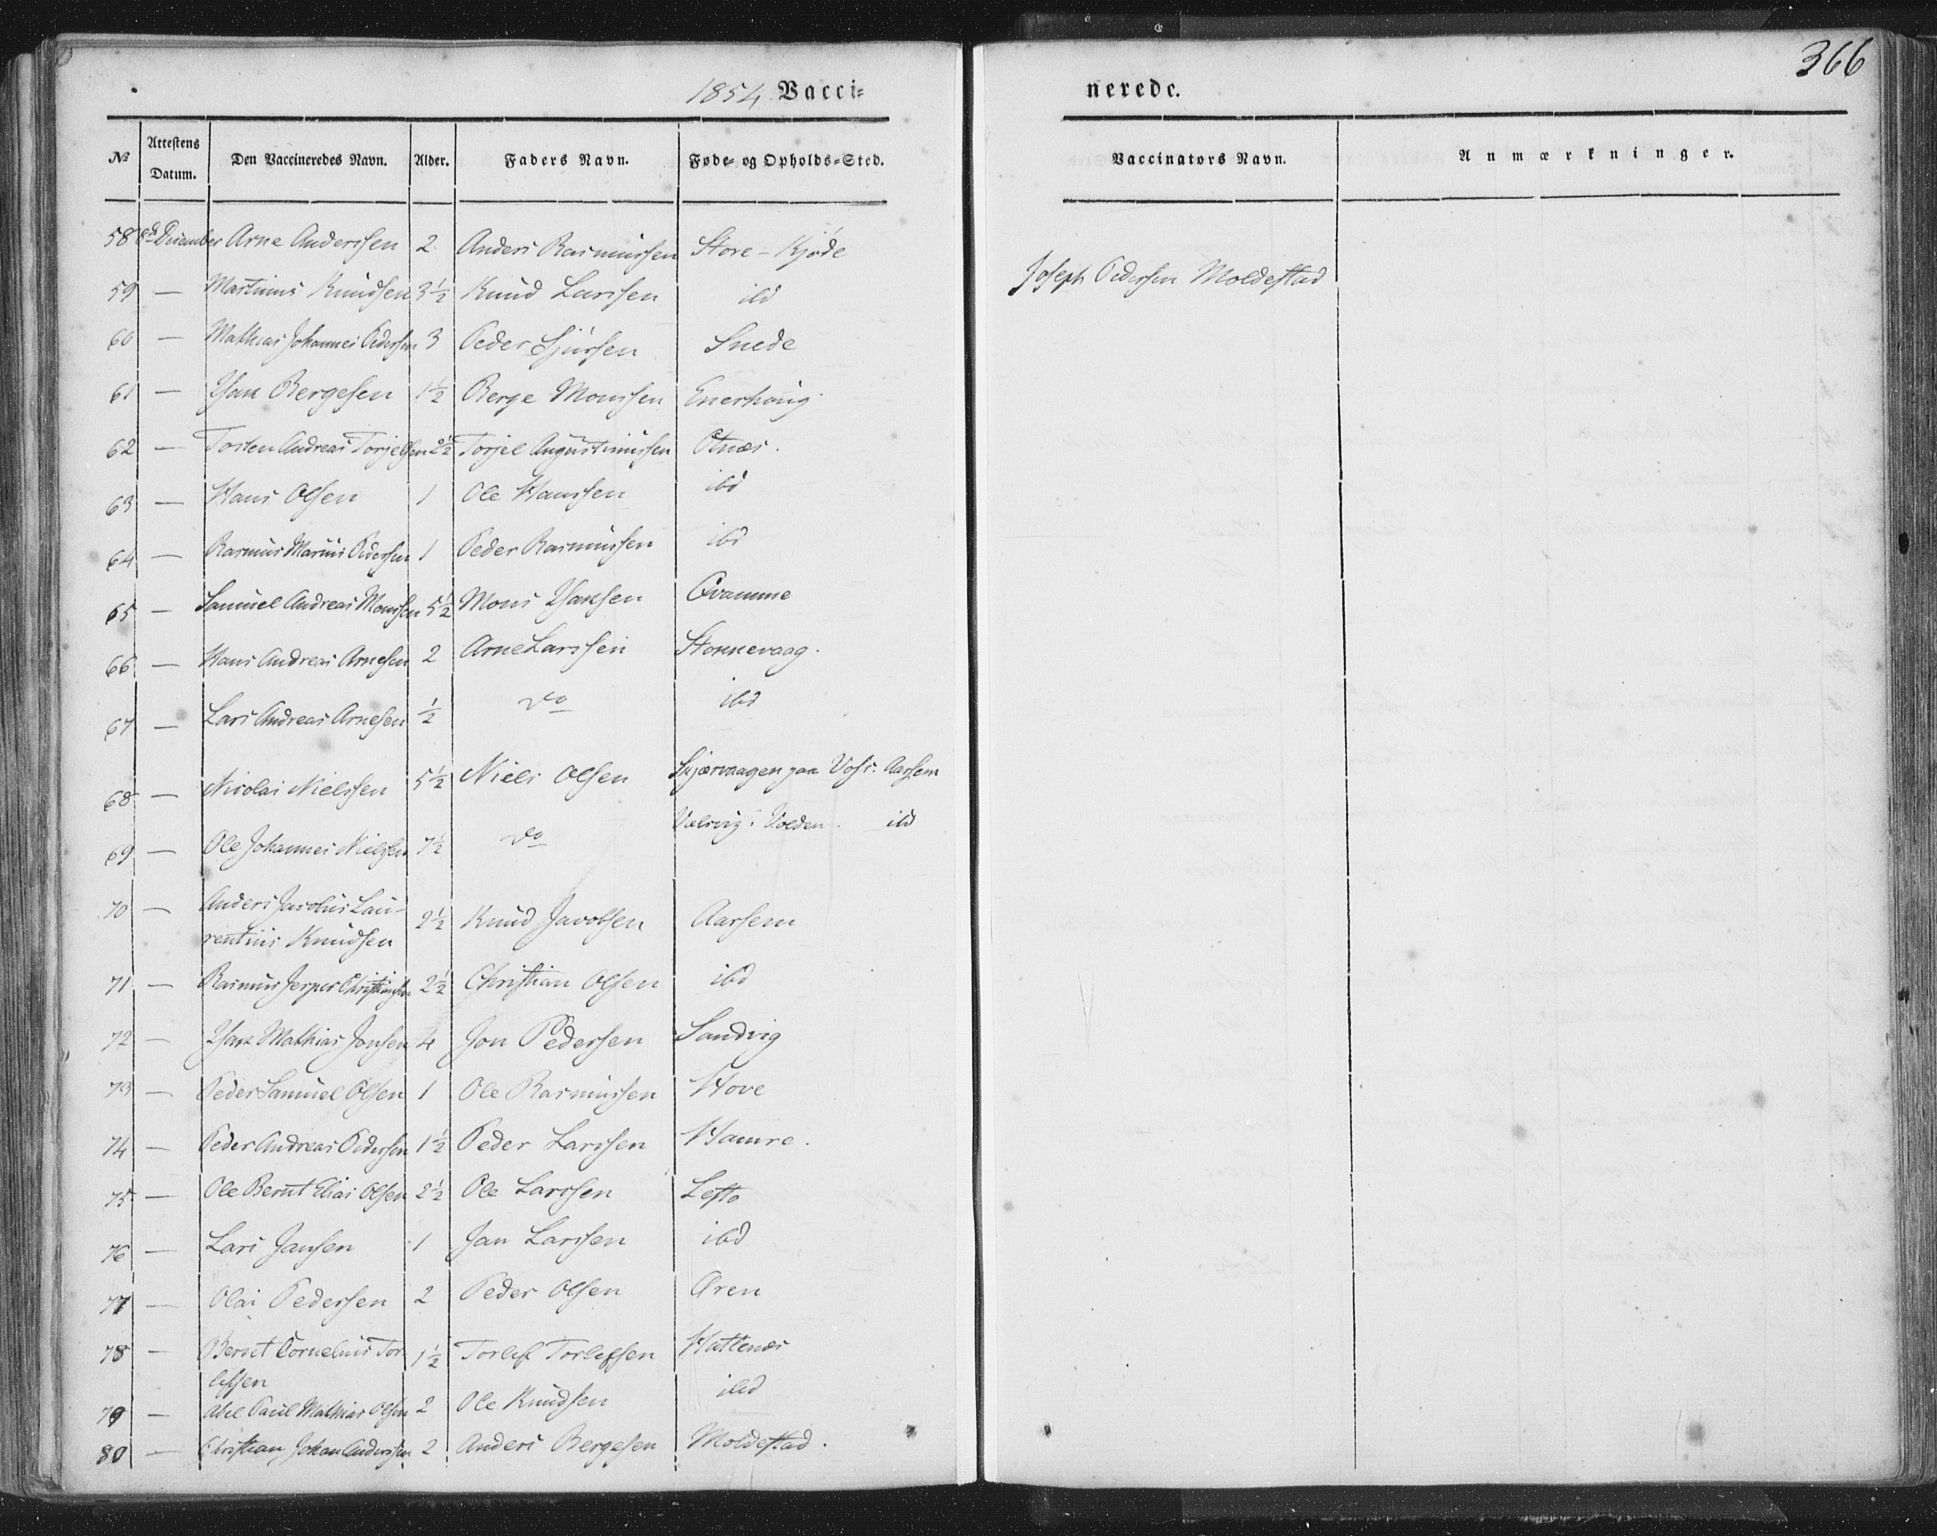 366
1854 Vacci=
nerede.
№ Attestens Datum. Den Vaccineredes Navn. Alder. Faders Navn. Føde- og Opholds-Sted.
Vaccinators Navn. Anmærkninger.
58 8de December Arne Anderssen 2 Anders Rasmussen Store-Kjøde
Joseph Pederssen Moldestad
59 — Martinus Knudsen 3½ Knud Larssen ibd
60 — Mathias Johannes Pederssen 3 Peder Sjurssen Snede
61 — Hans Bergesen 1½ Berge Monssen Enerhaug
62 — Torsten Andreas Torjelsen 2½ Torjel Augustinussen Otnæs.
63 — Hans Olsen 1 Ole Hanssen ibd
64 — Rasmus Marius Pederssen 1 Peder Rasmussen ibd
65 — Samuel Andreas Monssen 5½ Mons Hansen Qvamme
66 — Hans Andreas Arnesen 2 Arne Larssen Stonnevaag.
67 — Lars Andreas Arnesen ½ do ibd
68 — Nicolai Nielssen 5½ Niels Olsen Skjærvaagen paa Voss: Aarsem
69 — Ole Johannes Nielssen 7½ do Vælvig i Volden. ibd
70 — Anders Jacobus Lau-
rentius Knudsen 2½ Knud Jacobsen Aarsem
71 — Rasmus Jesper Christiansen 2½ Christian Olsen ibd
72 — Hans Mathias Jonsen 4 Jon Pederssen Sandvig
73 — Peder Samuel Olsen 1 Ole Rasmussen Hove
74 — Peder Andreas Pederssen 1½ Peder Larssen Hamre.
75 — Ole Bernt Elias Olsen 2½ Ole Larssen Lesto
76 — Lars Jansen 1 Jan Larssen ibd
77 — Olai Pederssen 2 Peder Olsen Aren
78 — Bernt Cornelius Tor-
lefsen 1½ Torlef Torlefsen Hattenæs
79 — Abel Paul Mathias Olsen 2 Ole Knudsen ibd
80 — Christian Johan Anderssen 2 Anders Bergesen Moldestad.